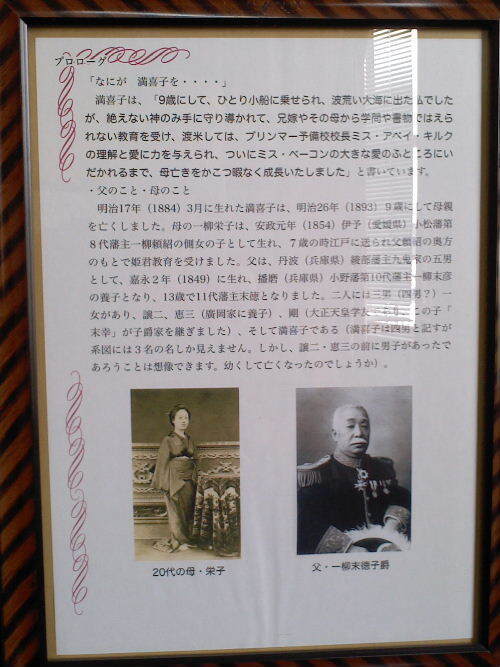 プロローグ
「なにが 満喜子を・・・・」
満喜子は、「9歳にして、ひとり小船に乗せられ、波荒い大海に出た私でした
が、絶えない神のみ手に守り導かれて、兄嫁やその母から学問や書物ではえら
れない教育を受け、渡米しては、ブリンマー予備校校長ミス・アベイ・キルク
の理解と愛に力を与えられ、ついにミス・ベーコンの大きな愛のふところにい
だかれるまで、母亡きをかこつ暇なく成長いたしました」と書いています。
・父のこと・母のこと
明治17年（1884）3月に生れた満喜子は、明治26年（1893）９歳にして母親
を亡くしました。母の一柳栄子は、安政元年（1854）伊予（愛媛県）小松藩第
８代藩主一柳頼紹の側女の子として生れ、７歳の時江戸に送られ父頼紹の奥方
のもとで姫君教育を受けました。父は、丹波（兵庫県）綾部藩主九鬼家の五男
として、嘉永２年（1849）に生れ、播磨（兵庫県）小野藩第10代藩主一柳末彦
の養子となり、13歳で11代藩主末徳となりました。二人には三男（四男？）一
女があり、譲二、恵三（廣岡家に養子）、剛（大正天皇学友 この子「
末幸」が子爵家を継ぎました）、そして満喜子である（満喜子は四男と記すが
系図には３名の名しか見えません。しかし、譲二・恵三の前に男子があったで
あろうことは想像できます。幼くして亡くなったのでしょうか）。
20代の母・栄子
父・一柳末徳子爵